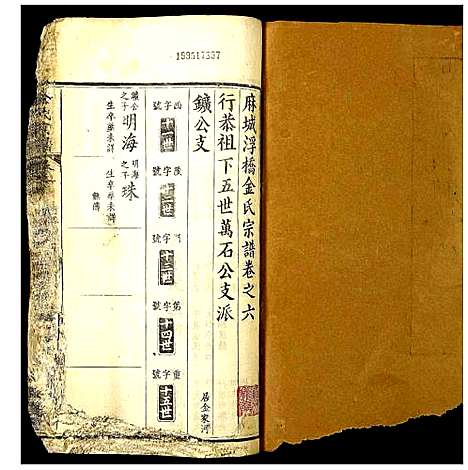 159517557
麻城浮橋金氏宗譜卷之六
行恭祖下五世萬石公支派
鑛公支
居金家河
西字號
十一世
陵字號
十二世
門字號
十三世
第字號
十四世
重字號
十五世
鑛公之子
明海
生卒葬未詳
明海之子
珠
生卒葬未詳